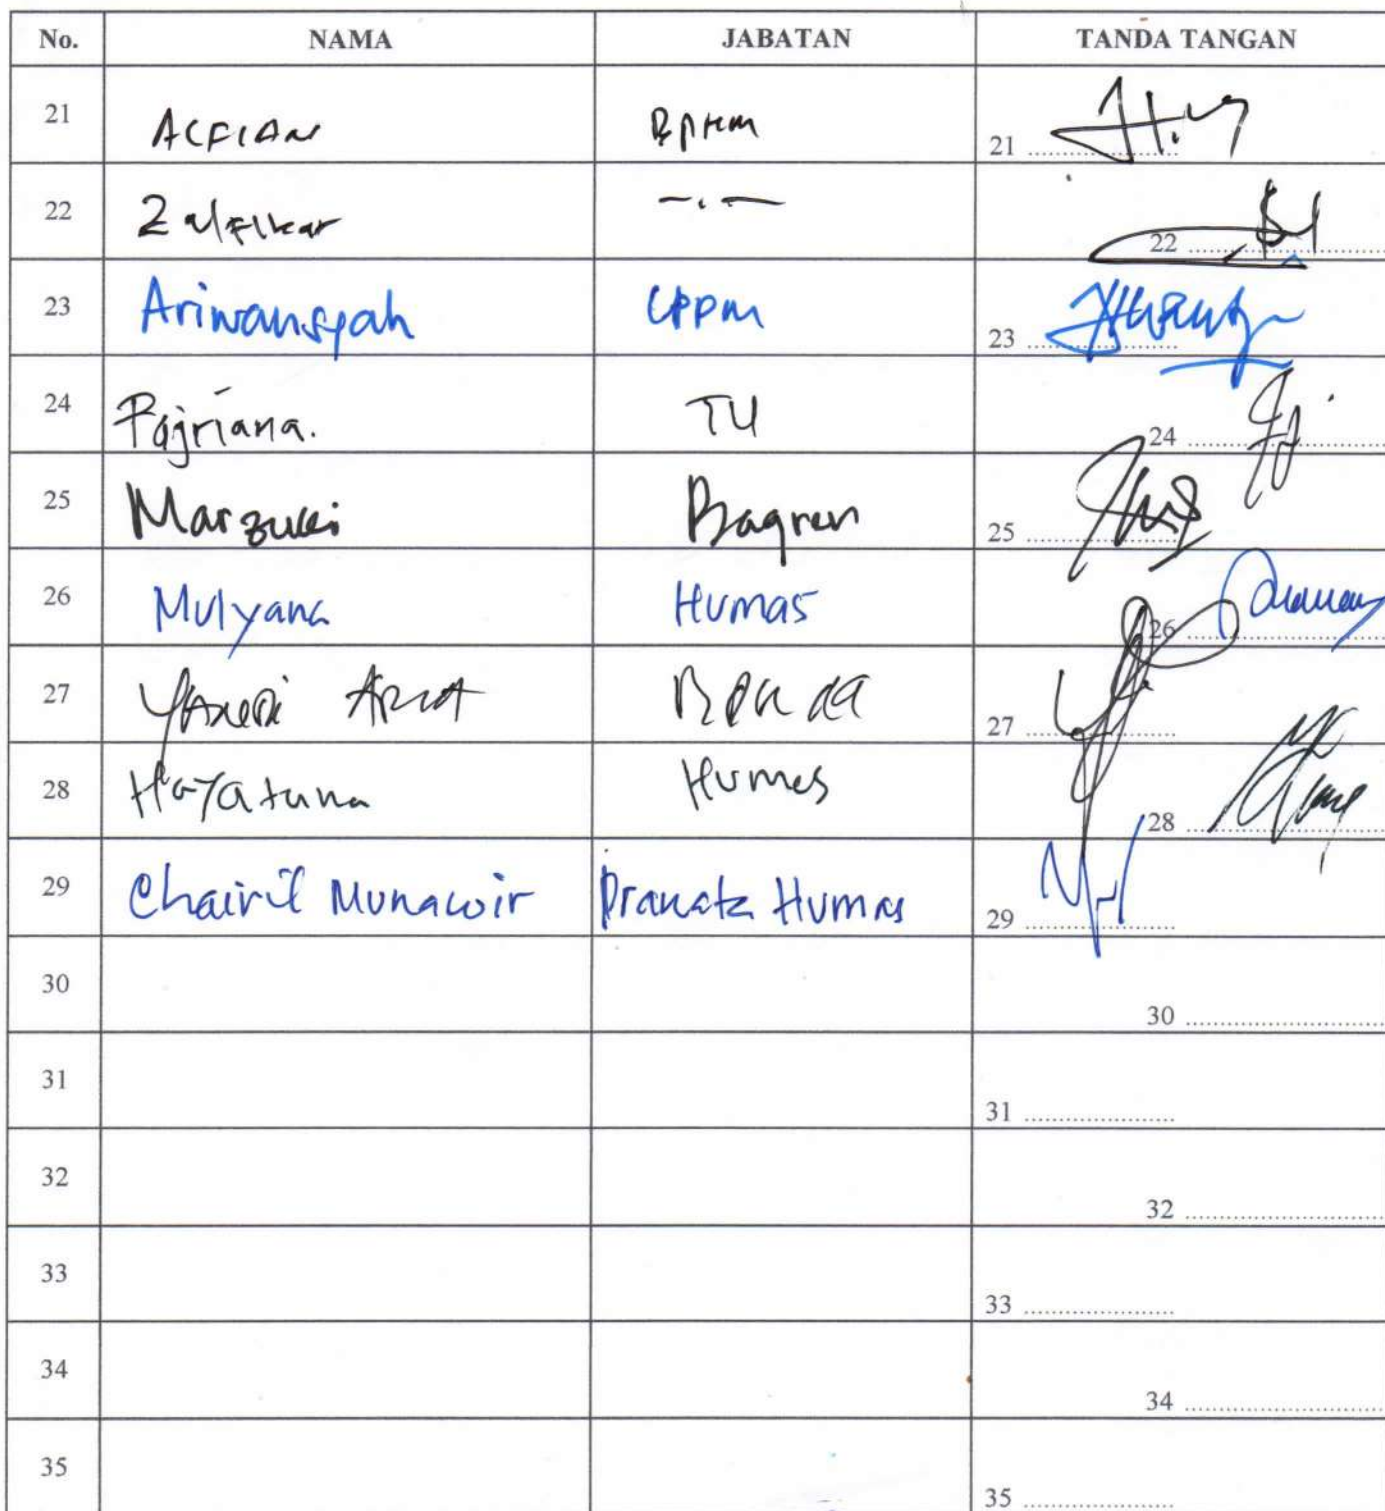 No. NAMA JABATAN TANDA TANGAN
21 ALFIAN 21
22 Zulfikar -.- 22
23 Ariwansyah LPPM 23
24 Fajriana. TU 24
25 Marzuki Bagren 25
26 Mulyana Humas 26
27 27
28 Hayatuna Humas 28
29 Chairil Munawir Pranata Humas 29
30 30
31 31
32 32
33 33
34 34
35 35